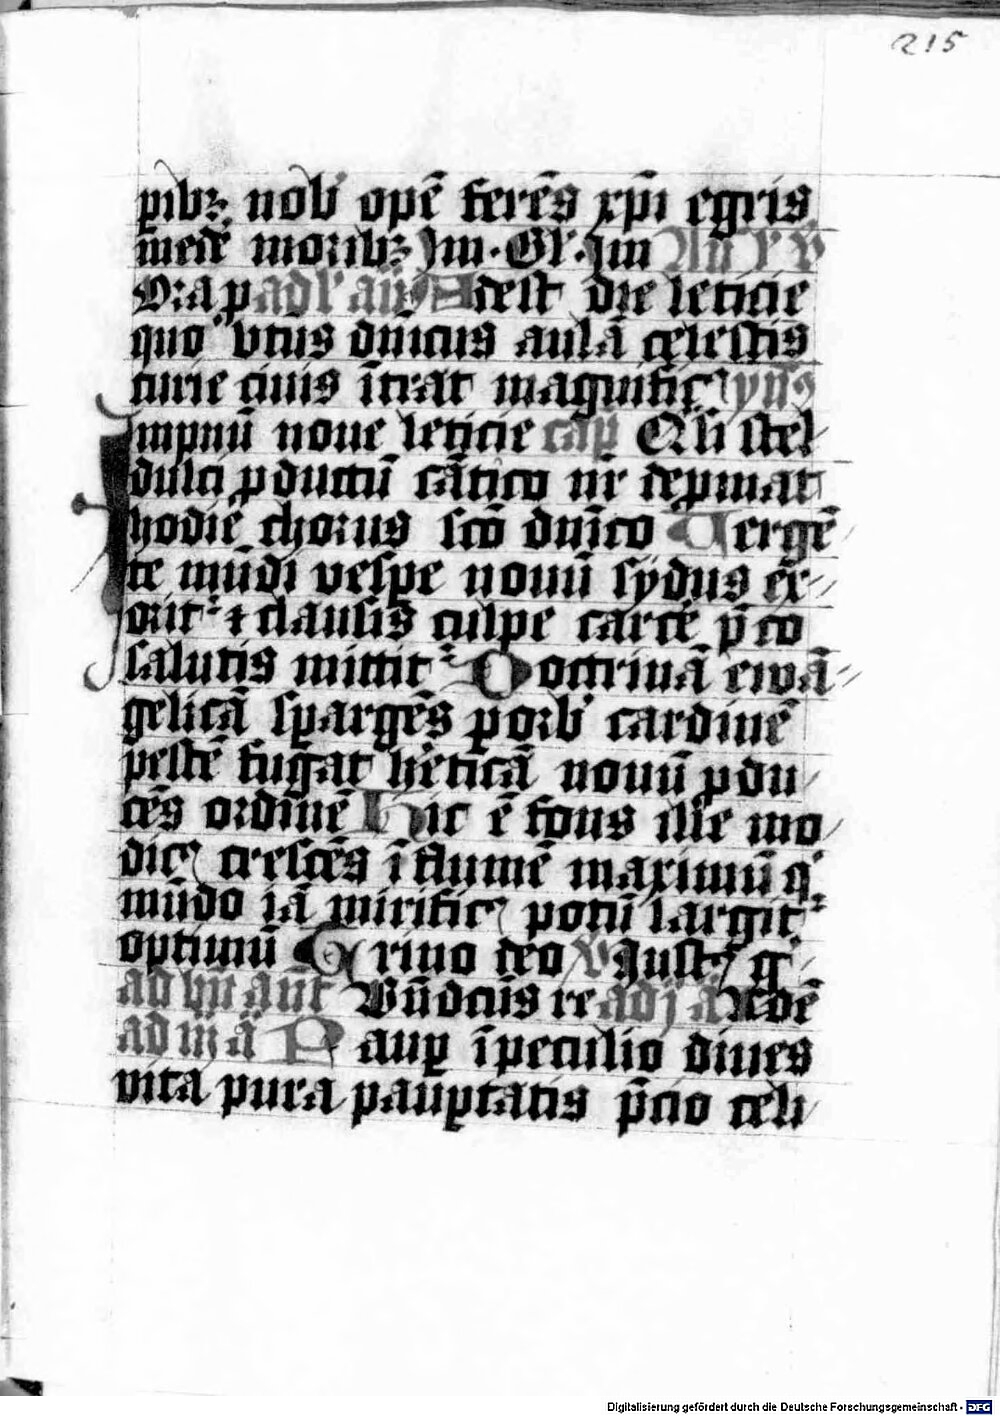 215
pibꝫ nob᷒ opē ferēs xp̄i egris
medē moribꝫ Im · Gl᷒ · Im
Ora p ad l᷒ añ Adest die leticie
quo vtus dn̄icus aulā celestis
curie ciuis īt᷑at magnific᷒ ymꝯ
Impnū noue leticie cap̄ Qn̄ stel
dulci ꝓductū cātico nr̄ depmat
hodiē chorus sc̄o dn̄ico Uergē
te mūdi vespe nouū sydus ex
orit᷑ ⁊ clausis culpe carcē p̄co
salutis mittit᷑ Doctrinā ewā
gelicā spargēs ꝑ orb᷒ cardinē
pestē fugat hẽticā nouū ꝓdu
cēs ordinē Hic ē fons ille mo
dic᷒ crescēs ī flumē maximū q
mūdo iā mirific᷒ potū largit᷑
optimū Trino deo V Iust᷒ g
ad bn̄ ant᷒ Bn̄dcūs re ad j ā Ardē
ad m̄ ā Paup ī peculio diues
vita pura pauptatis p̄cio celi
Digitalisierung gefördert durch die Deutsche Forschungsgemeinschaft - DFG